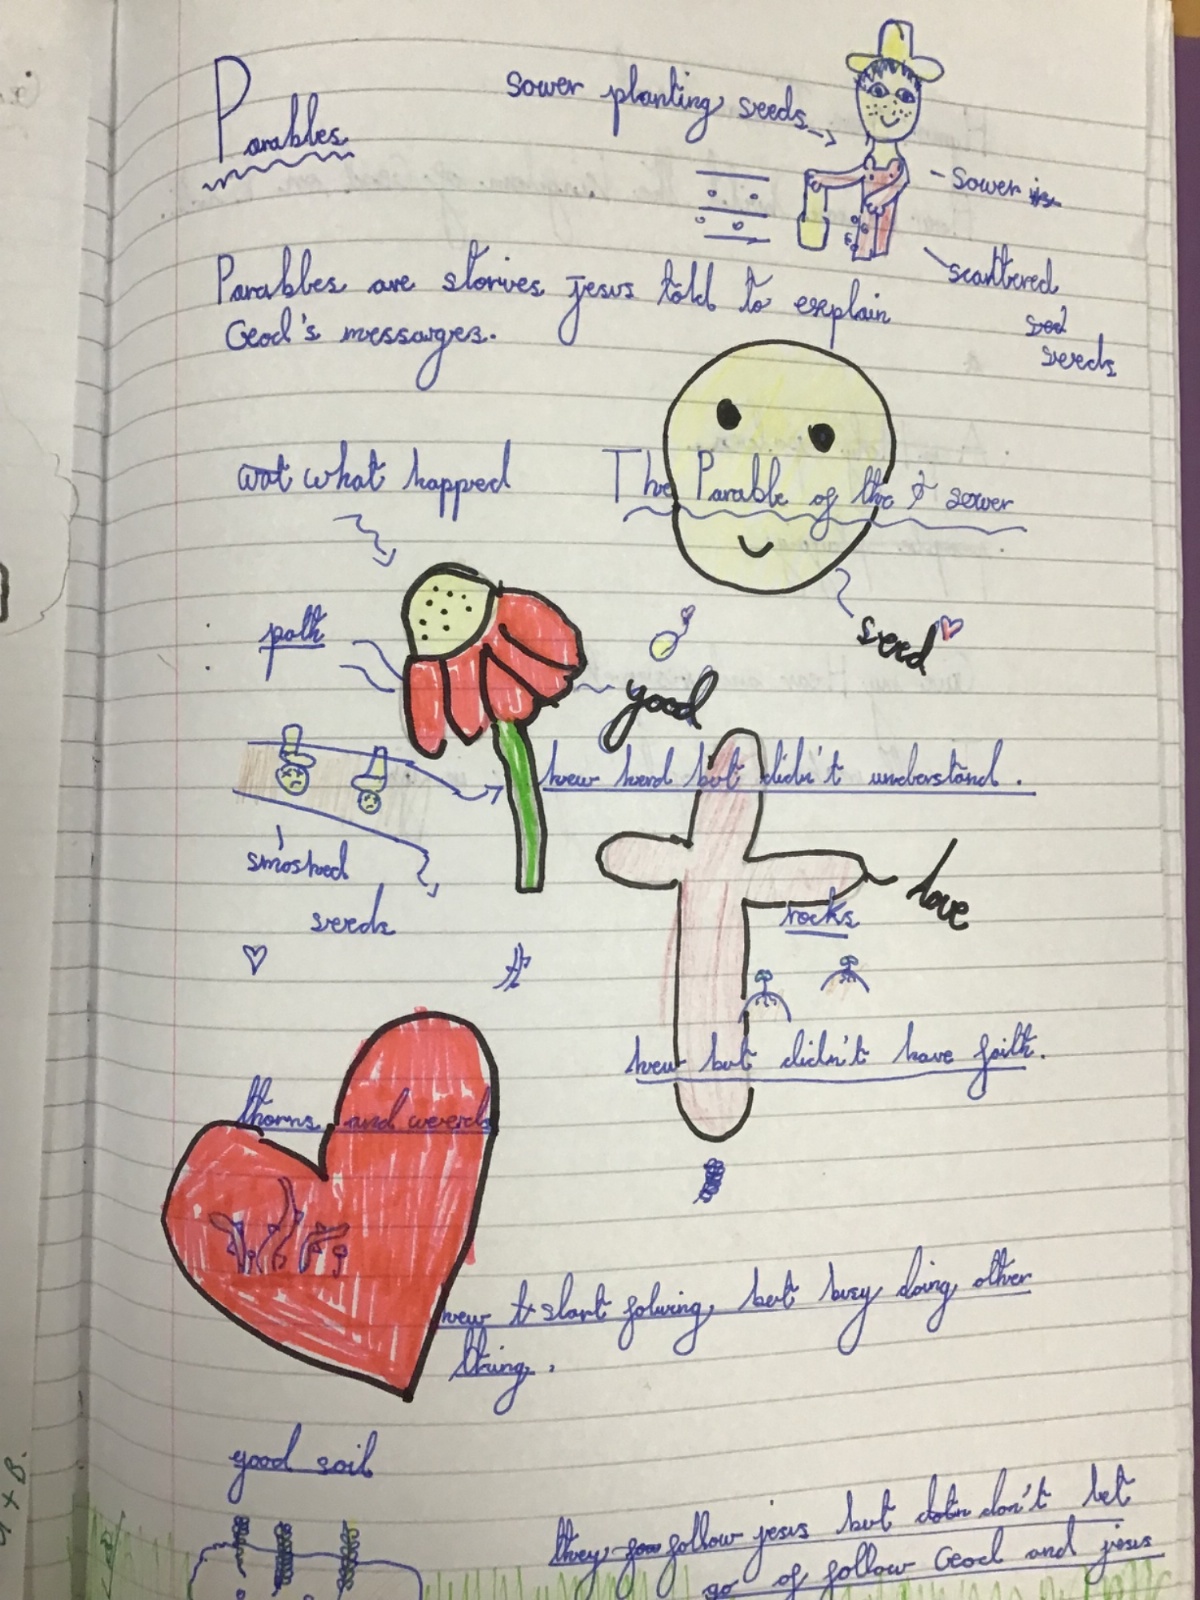 Parables
sower planting seeds
- sower is
scattered
sed
seeds
Parables are storives jesus told to explain
God's messages.
wat what happed
The Parable of the sower
seed
path
good
hew herd but didn't understand.
smoshed
seeds
love
rocks
hew but didn't have faith.
thorns and weeds
hew t start folwing but busy doing other
thing.
good soil
they follow jesus but don't let
go of follow God and jesus